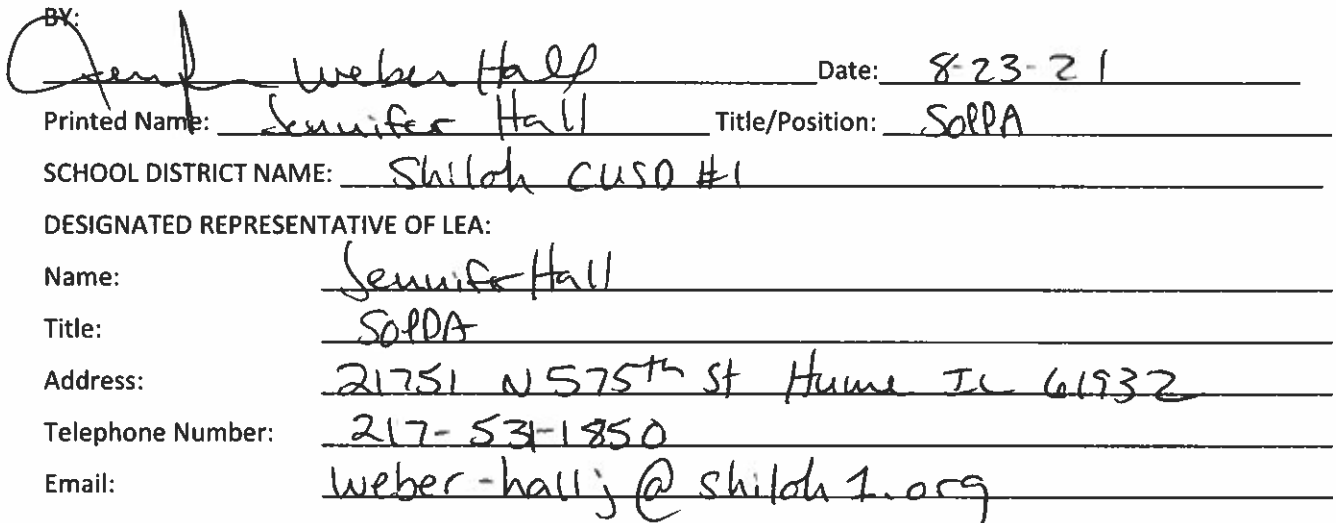 BY:
Jenf Weber Hall Date: 8-23-21
Printed Name: Jennifer Hall Title/Position: SOPPA
SCHOOL DISTRICT NAME: Shiloh CUSD #1
DESIGNATED REPRESENTATIVE OF LEA:
Name: Jennifer Hall
Title: SOPDA
Address: 21751 N 575th St Hume IL 61932
Telephone Number: 217-531-1850
Email: weber-hallj@shiloh1.org